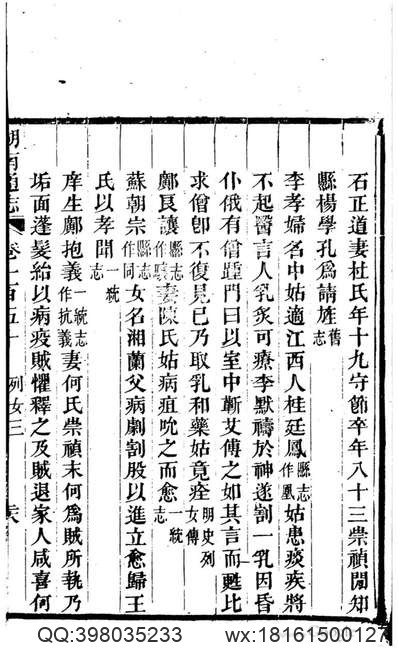 石正道妻杜氏年十九守節卒年八十三崇禎間知
縣楊學孔爲請旌舊志
李孝婦名中姑適江西人桂廷鳳縣志作鳳姑患痰疾將
不起醫言人乳炙可療李默禱於神遂割一乳因昏
仆俄有僧踵門曰以室中蘄艾傅之如其言而甦比
求僧卽不復見已乃取乳和藥姑竟痊明史列女傳
鄺艮讓縣志作妻陳氏姑病疽吮之而愈一統志
蘇朝宗縣志作同女名湘蘭父病劇割股以進立愈歸王
氏以孝聞一統志
庠生鄺抱義一統志作抗義妻何氏崇禎末何爲賊所執乃
垢面蓬髮紿以病疫賊懼釋之及賊退家人咸喜何
湖南通志 卷二百五十 列女三
QQ:398035233
wx:18161500127